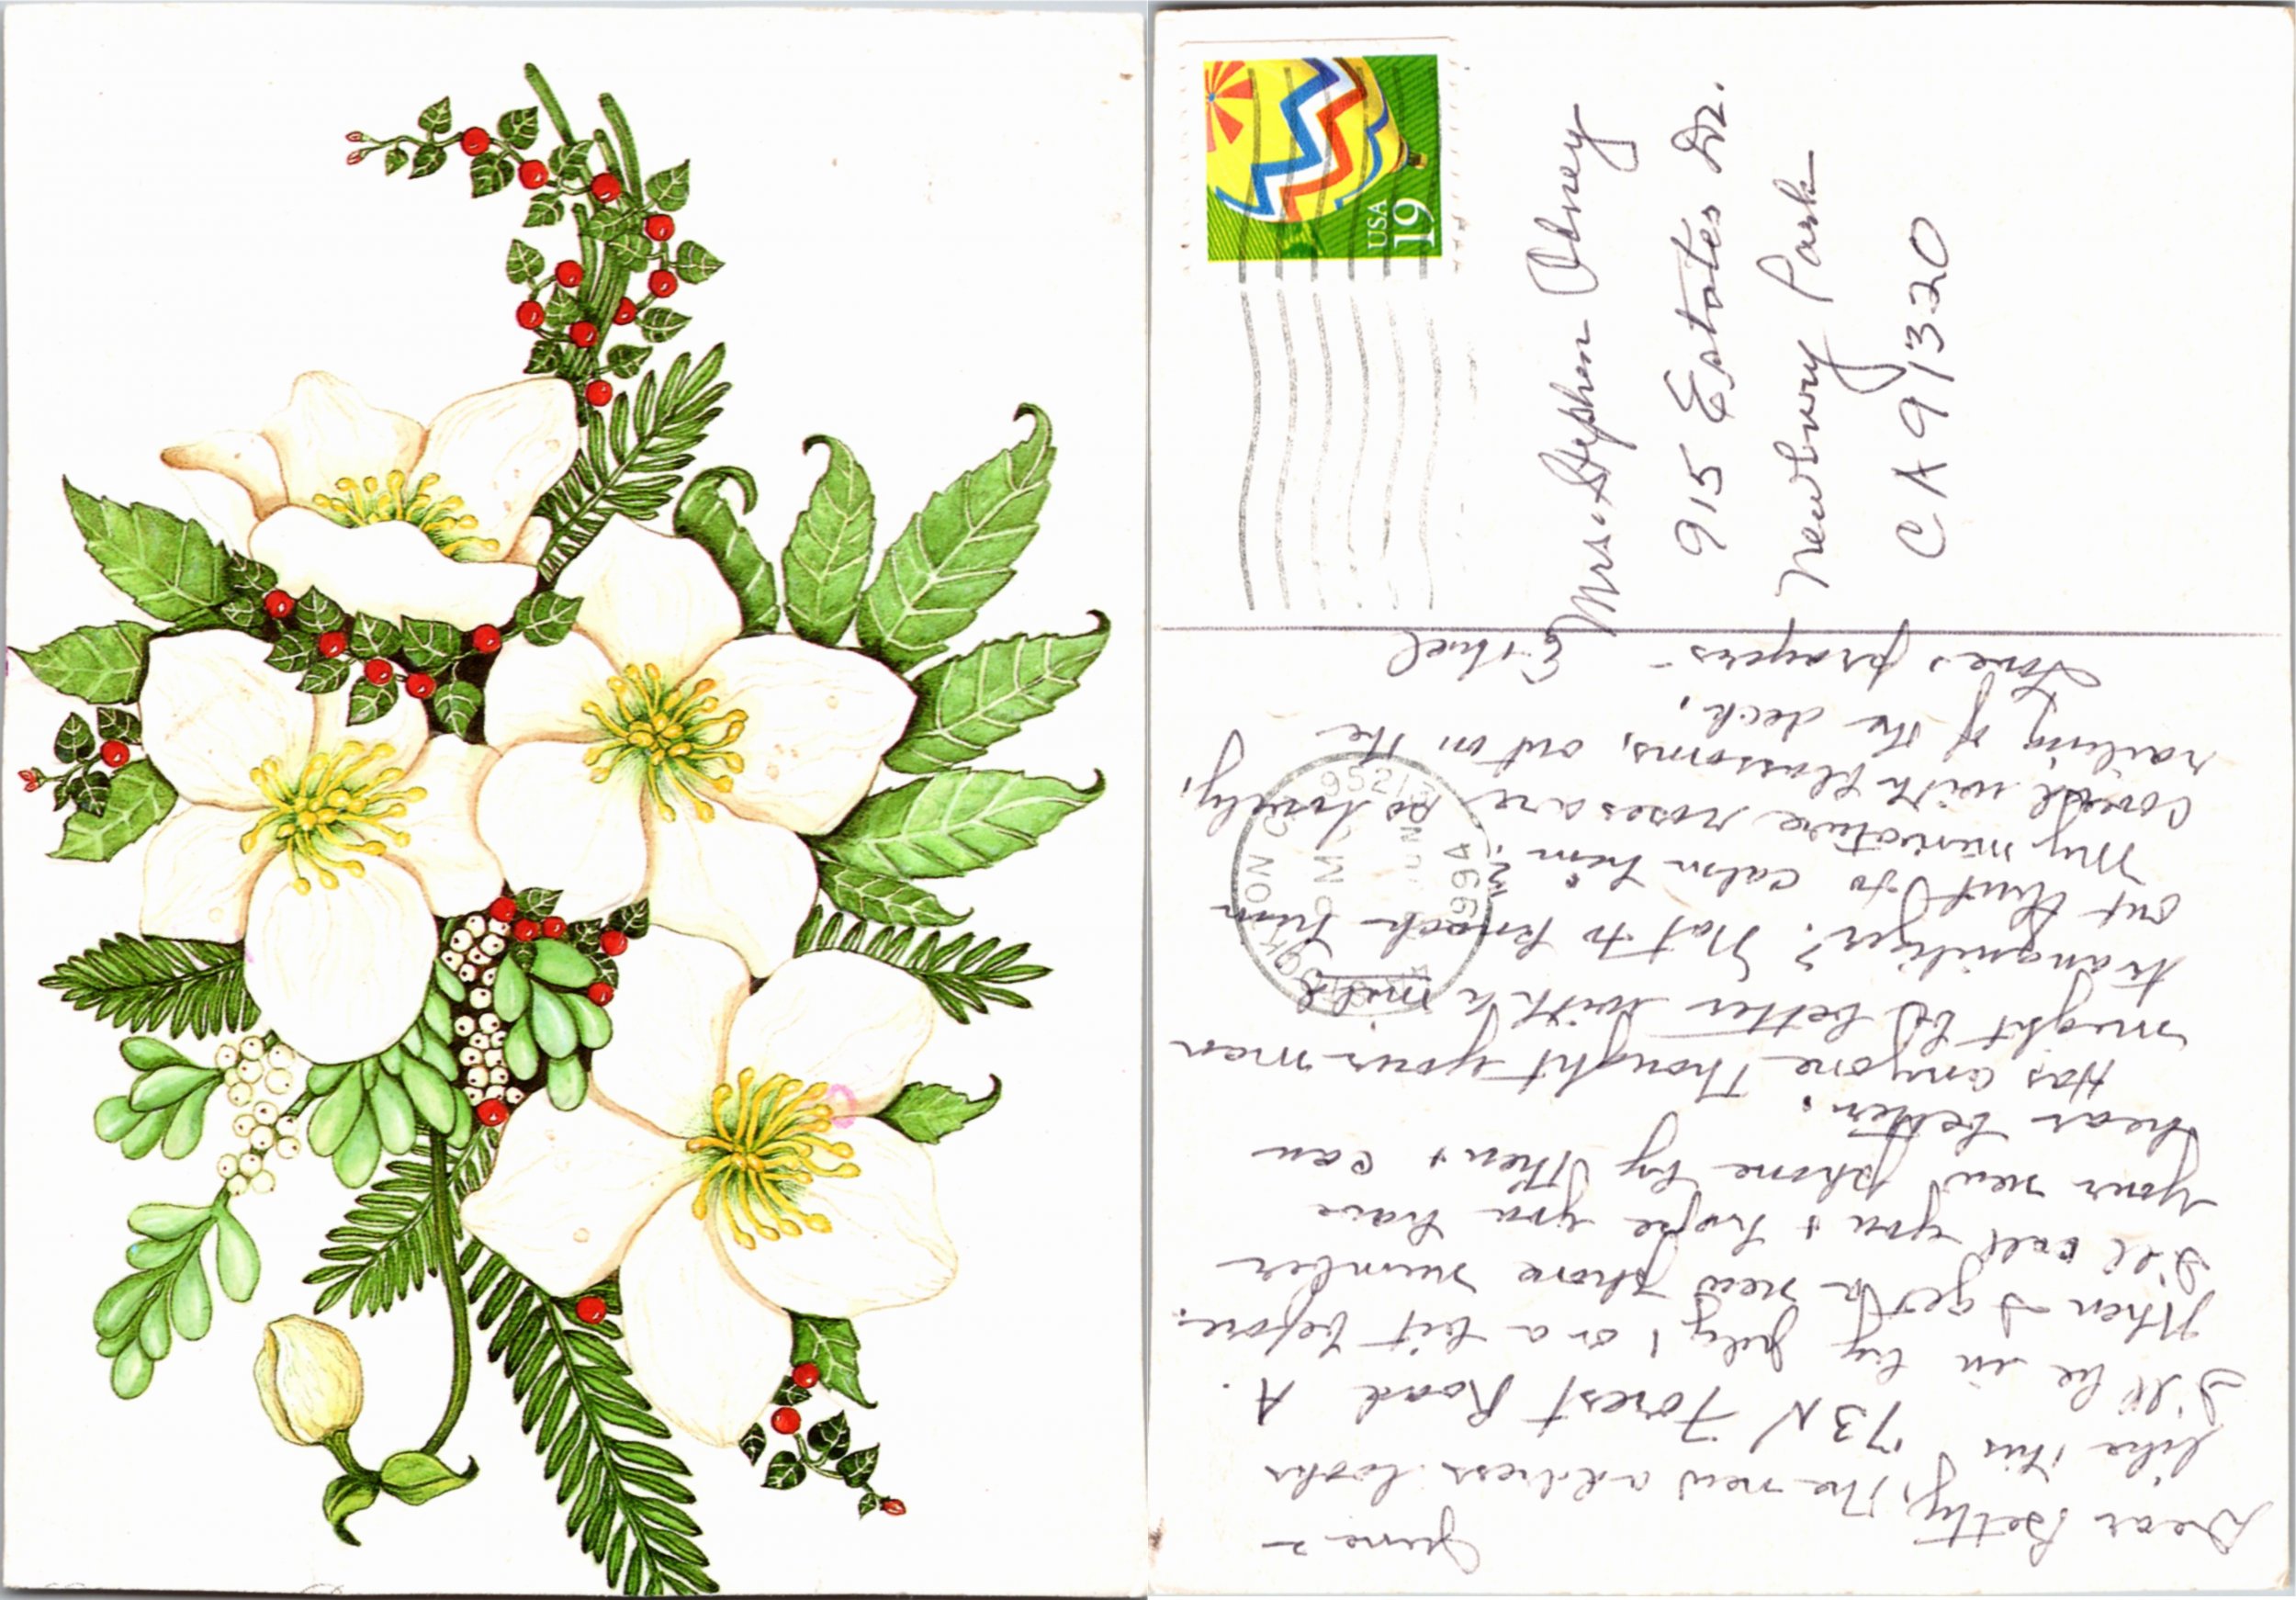 USA
19
STOCKTON CA
952
PM
JUN
1994
Mrs. Stephen Odney
915 Estates Dr.
Newbury Park
CA 91320
June 2
Dear Betty, The new address looks
like this 73 N Forest Road A.
I'll be in by July 1 or a bit before.
When I get a new phone number
I'll call you & hope you have
your new phone by then & can
hear better.
Has anyone thought your man
might be better with a mild
tranquilizer? Not to knock him
out but to calm him.
My miniature roses are so lovely,
covered with blossoms, out on the
railing of the deck.
Love & prayers - Ethel